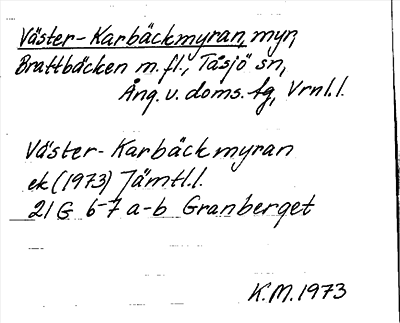 Väster-Karbäckmyran, myr,
Brattbäcken m.fl., Tåsjö sn,
Ång. v. doms. tg, Vrnl.l.
Väster-Karbäckmyran
ek (1973) Jämtl.l.
21G 6-7 a-b Granberget
K.M. 1973